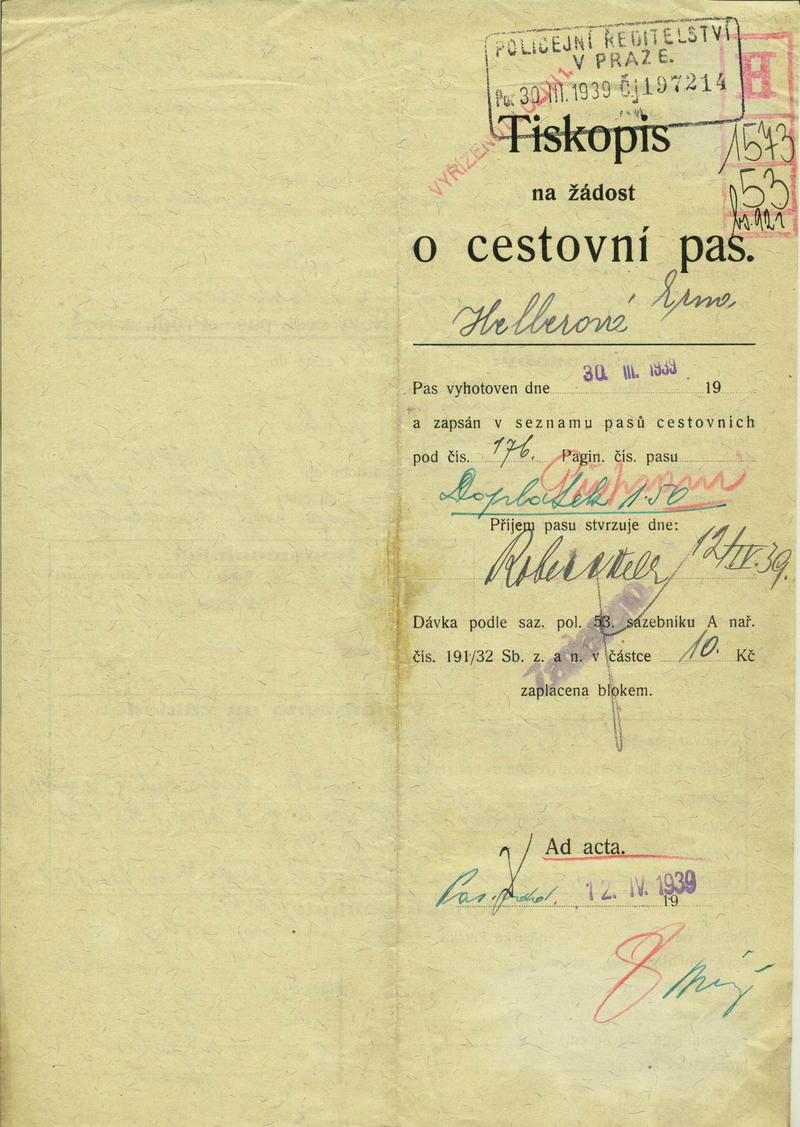 POLICEJNÍ ŘEDITELSTVÍ
V PRAZE.
30. III. 1939 Čj 197214
H
1573
53
Tiskopis
na žádost
o cestovní pas.
Hellerová Erna
Pas vyhotoven dne 30. III. 1939 19
a zapsán v seznamu pasů cestovních
pod čís. 176. Pagin. čís. pasu
Doplatek 1.50
Příjem pasu stvrzuje dne:
12/IV. 39.
Dávka podle saz. pol. 53. sazebníku A nař.
čís. 191/32 Sb. z. a n. v částce 10. Kč
zaplacena blokem.
Ad acta.
12. IV. 1939
19